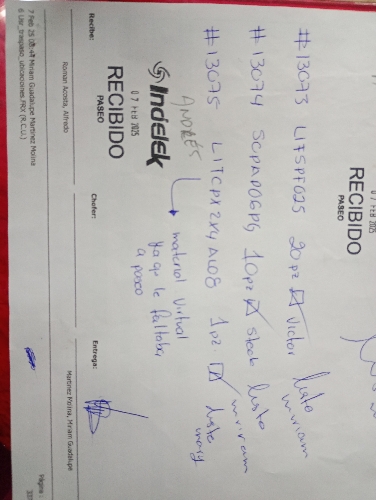 07 FEB 2025
RECIBIDO
PASEO
#13073 LIFSPF025 20pz Victor listo miriam
#13074 SCPAP06PG 10pz stock listo miriam
#13075 LITCPX2X4AL08 1pz. listo mary
ANDRÉS
material virtual
ya que le faltaba
a paseo
Indelek
07 FEB 2025
RECIBIDO
PASEO
Recibe: Chofer: Entrega:
Roman Acosta, Alfredo Martinez Molina, Miriam Guadalupe
7 Feb 25 Miriam Guadalupe Martinez Molina Página
6 Usr_traspaso_ubicaciones PRX (R.C.U.)